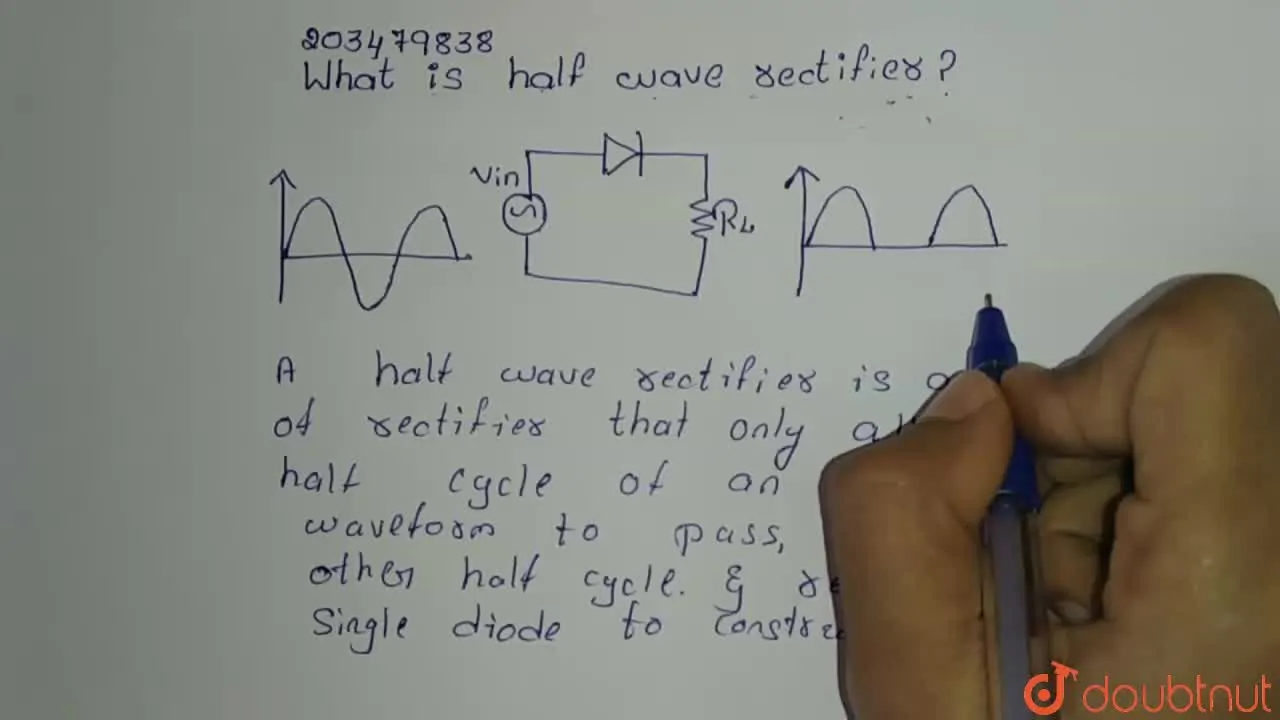 203479838
What is half wave rectifier?
Vin
RL
A half wave rectifier is
of rectifier that only
half cycle of an
waveform to pass,
other half cycle. &
Single diode to
doubtnut